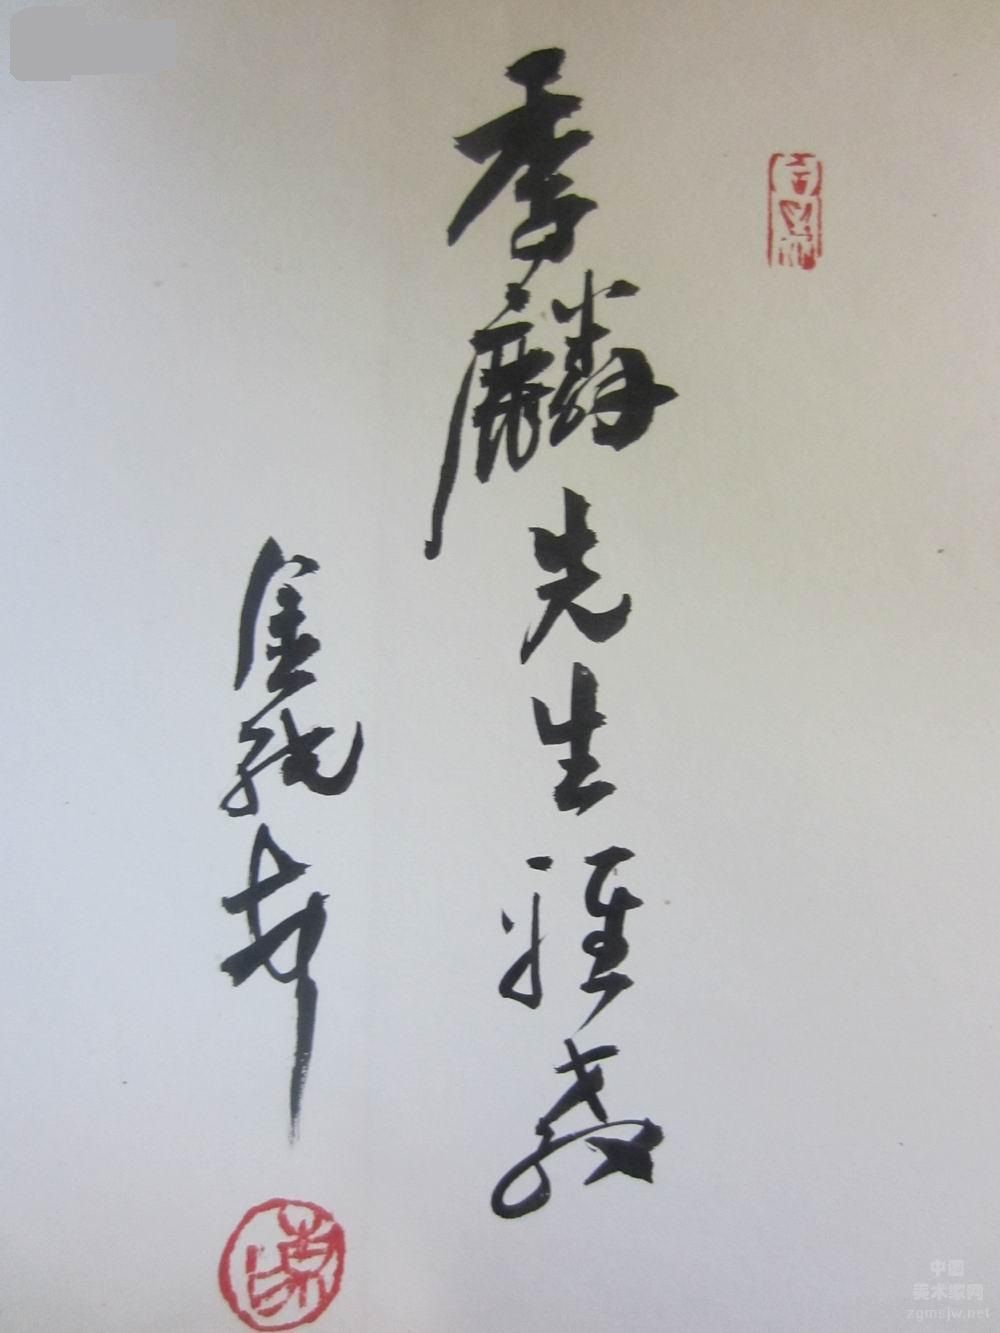 季麟先生雅教
金
中国
美术家网
zgmsjw.net